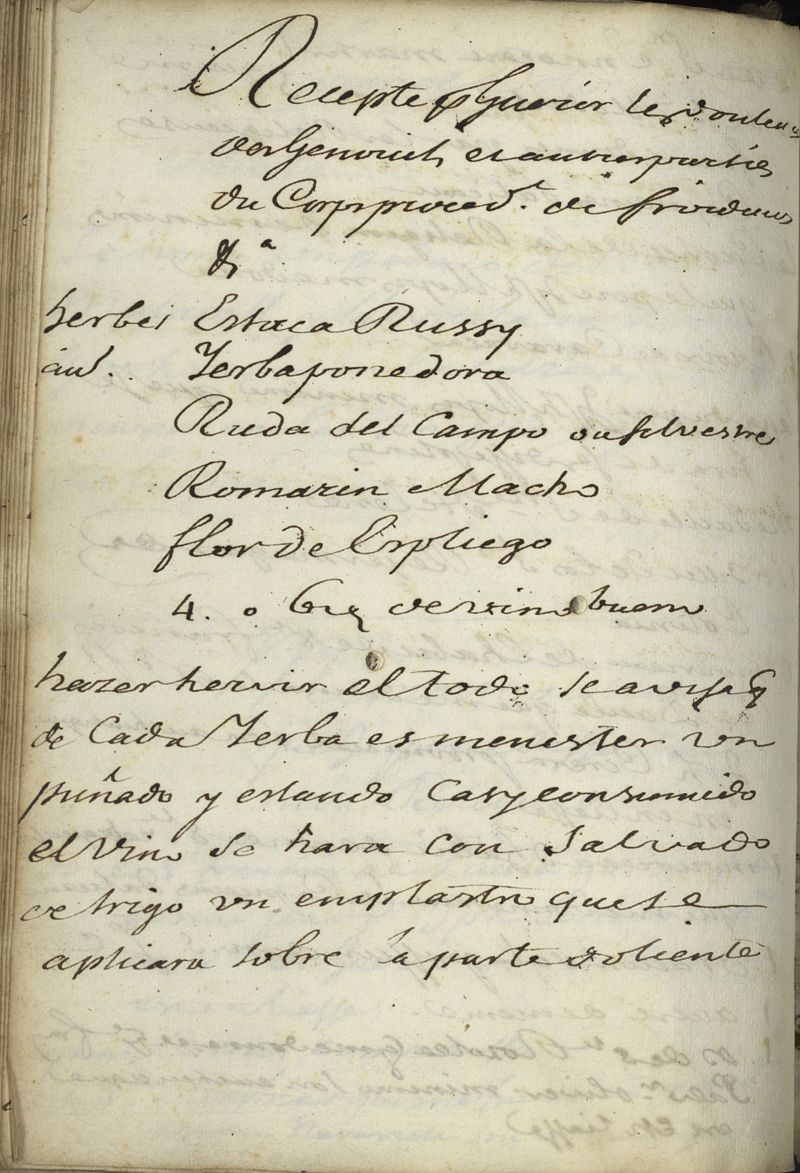 Recepte p Guerir les douleurs
des Genouils et autres parties
du Corps proced.r de froideurs
&a
herbes Estaca Russy
aud. Yerba ponedora
Ruda del Campo ou silvestre
Romarin Macho
flor de Espliego
4. o 6 de vino bueno
hazer hervir el todo se avisa q
de Cada Yerba es menester un
puñado y estando Casy consumido
el Vino se hara con salvado
de trigo un emplastro que se
aplicara sobre la parte doliente